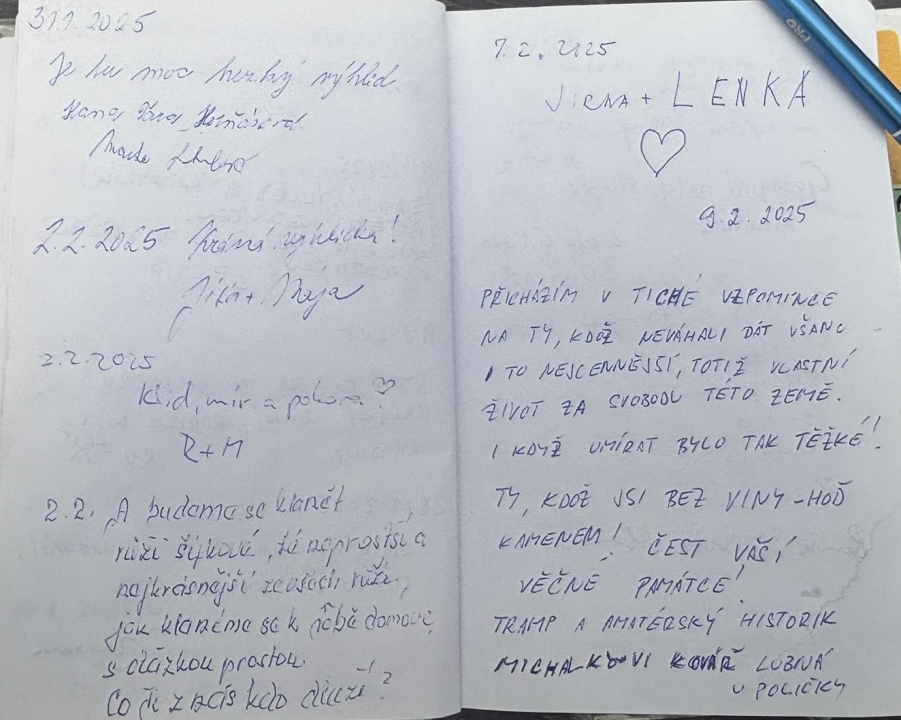 31.1. 2025
Je tu moc hezký výhled
Hana Jana
2.2.2025 Krásná vyhlídka!
Jirka + Maja
2.2.2025
Klid, mír, a pokora ♡
R+M
2.2. A budeme se klanět
růži šípkové, té naprostší a
nejkrásnější ze všech růží,
jak klaníme se k domova,
s otázkou prostou
Co
7.2. 2125
+ LENKA
♡
9.2. 2025
PŘICHÁZÍM V TICHÉ VZPOMINCE
NA TY, KDOŽ NEVÁHALI DÁT VŠANC
I TO NEJCENNĚJŠÍ, TOTIŽ VLASTNÍ
ŽIVOT ZA SVOBODU TÉTO ZEMĚ.
I KDYŽ UMÍRAT BYLO TAK TĚŽKÉ!
TY, KDOŽ JSI BEZ VINY - HOĎ
KAMENEM! ČEST VAŠÍ
VĚČNÉ PAMÁTCE!
TRAMP A AMATÉRSKÝ HISTORIK
KOVÁŘ LUBNÁ
U POLIČKY
PRO